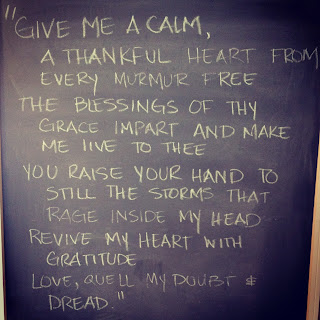 "GIVE ME A CALM,
A THANKFUL HEART FROM
EVERY MURMUR FREE
THE BLESSINGS OF THY
GRACE IMPART AND MAKE
ME LIVE TO THEE
YOU RAISE YOUR HAND TO
STILL THE STORMS THAT
RAGE INSIDE MY HEAD
REVIVE MY HEART WITH
GRATITUDE
LOVE, QUELL MY DOUBT &
DREAD."